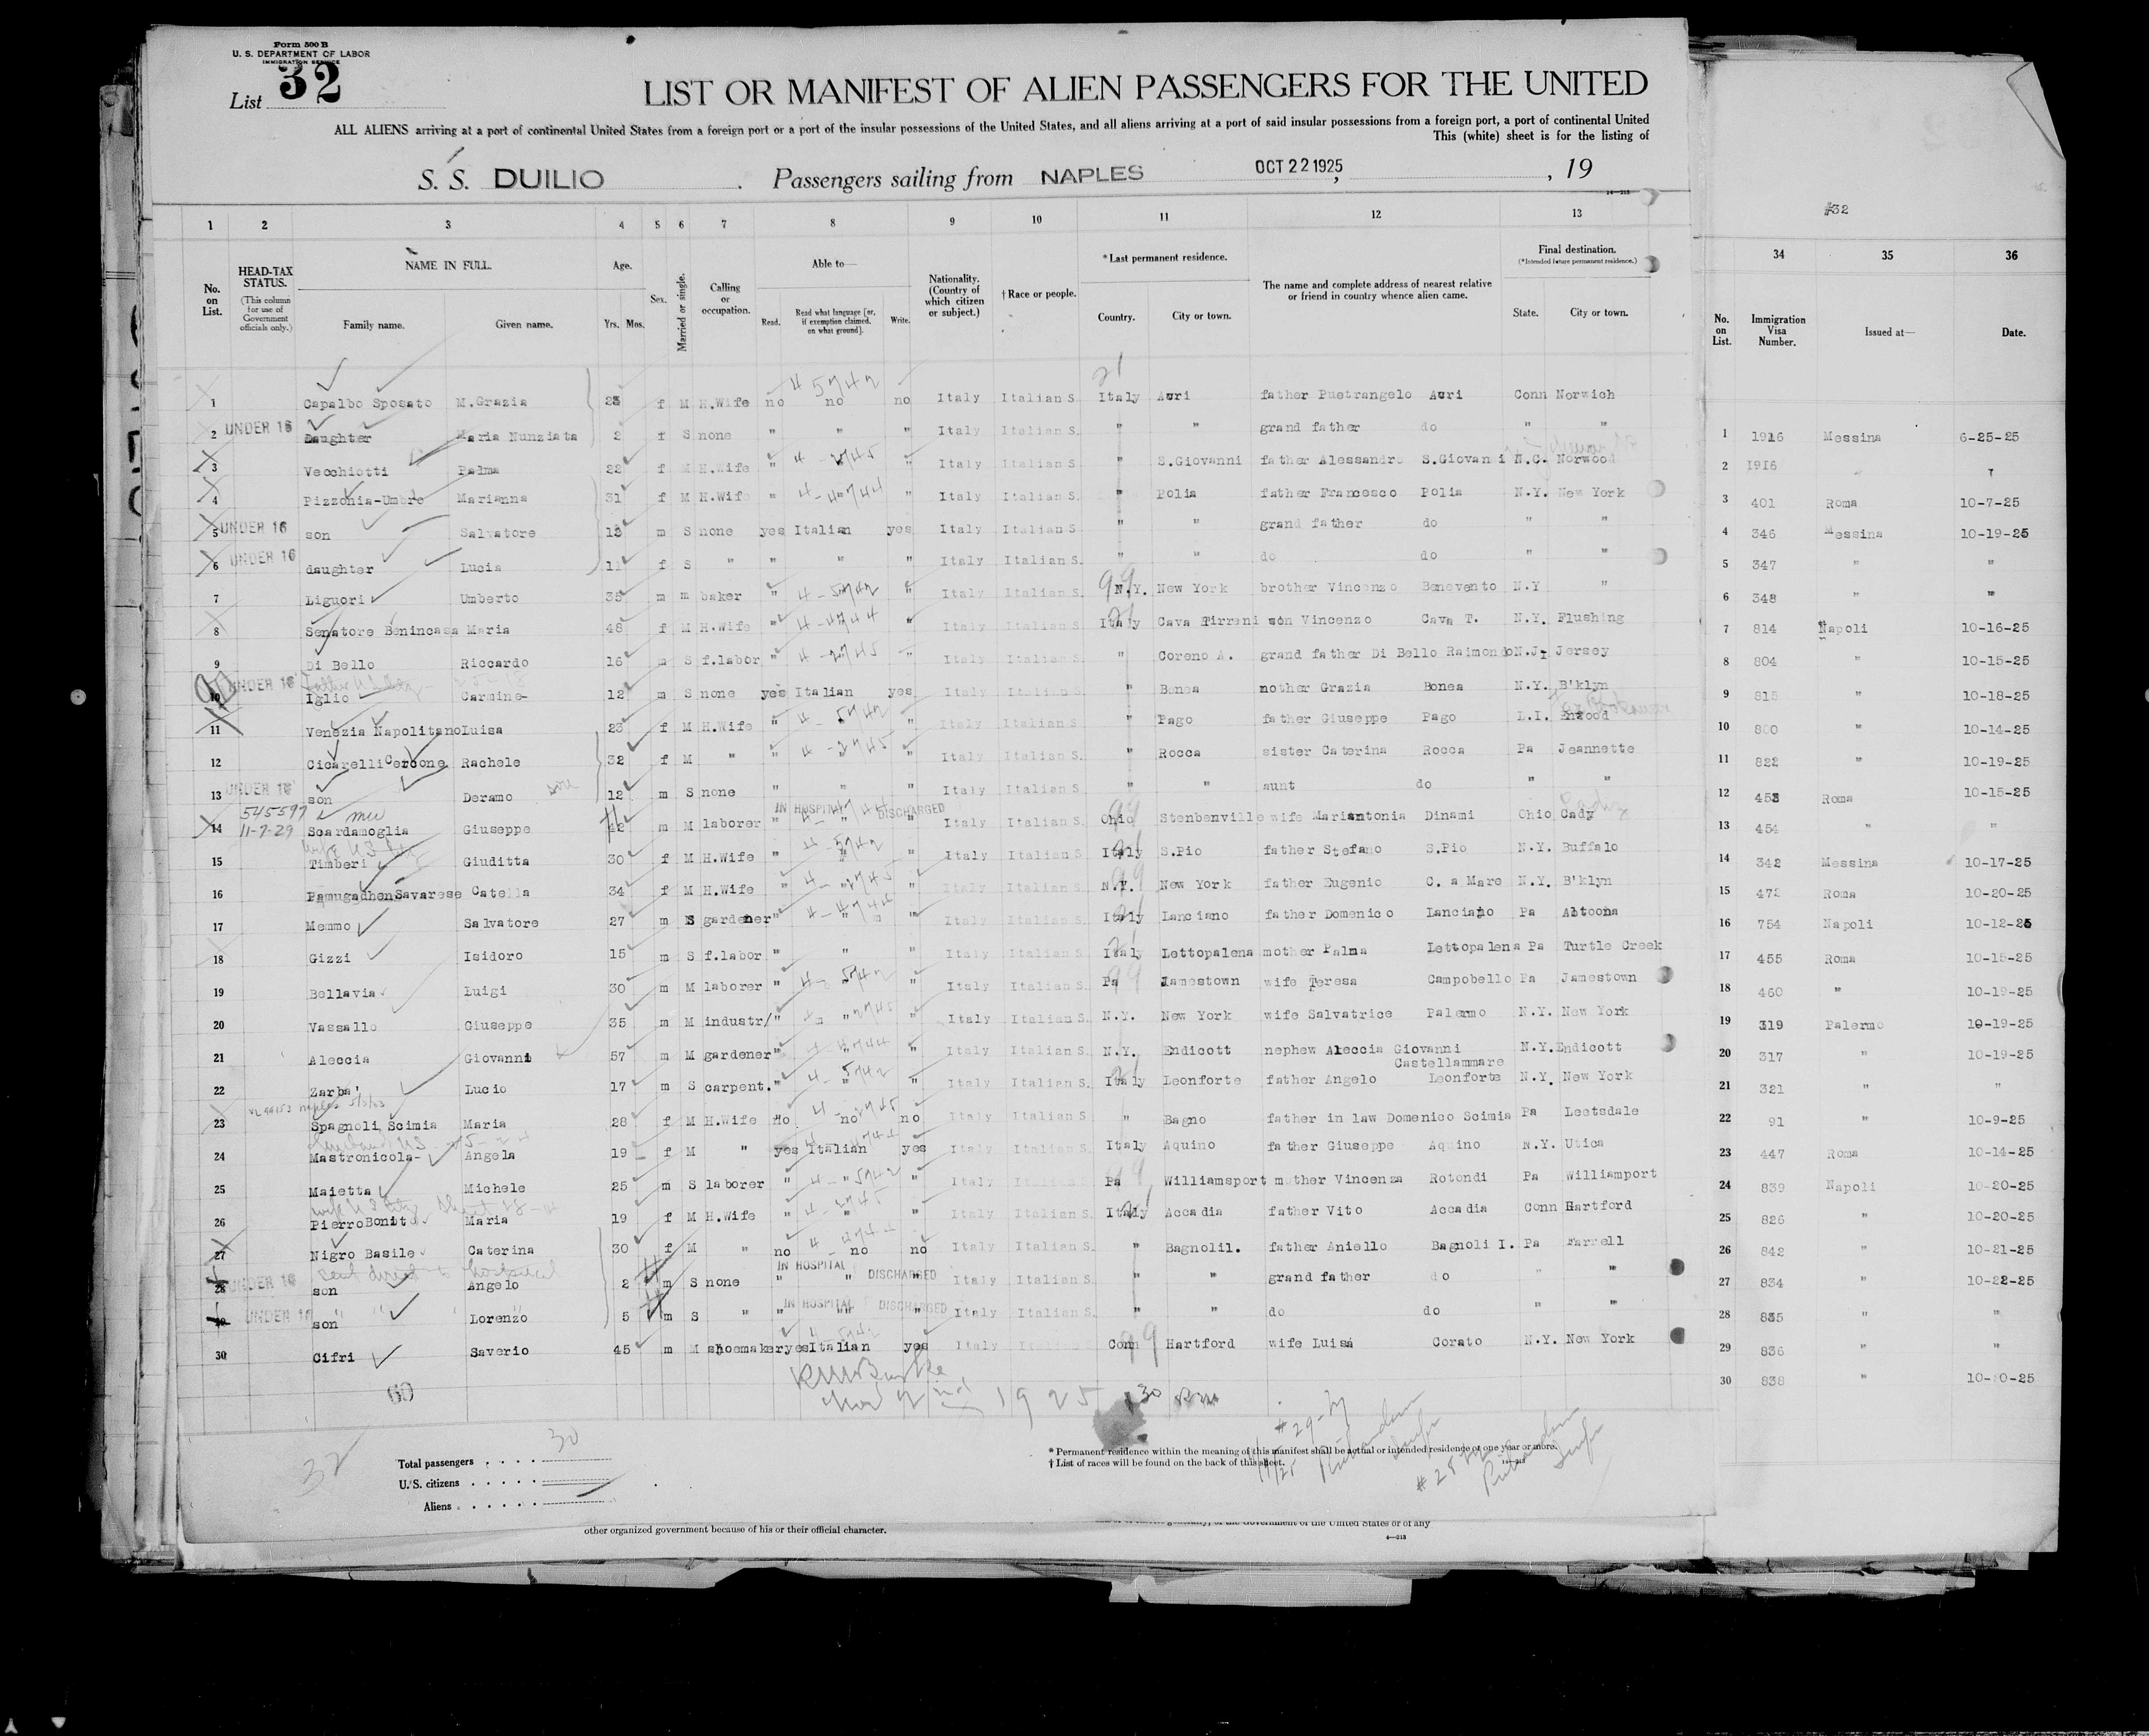 Form 500 B
U. S. DEPARTMENT OF LABOR
IMMIGRATION SERVICE
List 32
LIST OR MANIFEST OF ALIEN PASSENGERS FOR THE UNITED
ALL ALIENS arriving at a port of continental United States from a foreign port or a port of the insular possessions of the United States, and all aliens arriving at a port of said insular possessions from a foreign port, a port of continental United
This (white) sheet is for the listing of
S. S. DUILIO . Passengers sailing from NAPLES OCT 22 1925 , 19
#32
1 2 3 4 5 6 7 8 9 10 11 12 13
34 35 36
No. on List. HEAD-TAX STATUS. (This column for use of Government officials only.) NAME IN FULL. Family name. Given name. Age. Yrs. Mos. Sex. Married or single. Calling or occupation. Able to— Read. Read what language [or, if exemption claimed, on what ground]. Write. Nationality. (Country of which citizen or subject.) †Race or people. *Last permanent residence. Country. City or town. The name and complete address of nearest relative or friend in country whence alien came. Final destination. (*Intended future permanent residence.) State. City or town.
No. on List. Immigration Visa Number. Issued at— Date.
1 Capalbo Sposato M.Grazia f M H.Wife no no no Italy Italian S. Italy Auri father Puetrangelo Auri Conn Norwich
2 UNDER 16 Daughter Maria Nunziata 2 f S none " " " Italy Italian S. " " grand father do " "
3 Vecchiotti Palma 22 f M H.Wife " " " Italy Italian S. " S.Giovanni father Alessandro S.Giovani N.C. Norwood
4 Pizzonia-Umbro Marianna 31 f M H.Wife " " " Italy Italian S. " Polia father Francesco Polia N.Y. New York
5 UNDER 16 son Salvatore 13 m S none yes Italian yes Italy Italian S " " grand father do " "
6 UNDER 16 daughter Lucia 11 f S " " " " Italy Italian S. " " do do " "
7 Liguori Umberto 35 m m baker " " " Italy Italian S. N.Y. New York brother Vincenzo Benevento N.Y "
8 Senatore Benincasa Maria 48 f M H.Wife " " " Italy Italian S. Italy Cava Tirreni son Vincenzo Cava T. N.Y. Flushing
9 Di Bello Riccardo 16 m S f.labor " " " Italy Italian S. " Coreno A. grand father Di Bello Raimondo N.J. Jersey
10 UNDER 16 Iglio Carmine- 12 m S none yes Italian yes Italy Italian S. " Bonea mother Grazia Bonea N.Y. B'klyn
11 Venezia Napolitano Luisa 23 f M H.Wife " " " Italy Italian S. " Pago father Giuseppe Pago L.I.
12 Cicarelli Cercone Rachele 32 f M " " " " Italy Italian S. " Rocca sister Caterina Rocca Pa Jeannette
13 UNDER 16 son Deramo 12 m S none " " " Italy Italian S. " " aunt do " "
545597 11-7-29 IN HOSPITAL DISCHARGED
14 Scardamoglia Giuseppe 42 m M laborer " " " Italy Italian S. Ohio Stenbenville wife Mariantonia Dinami Ohio Cady
15 Timberi Giuditta 30 f M H.Wife " " " Italy Italian S Italy S.Pio father Stefano S.Pio N.Y. Buffalo
16 Savarese Catella 34 f M H.Wife " " " Italy Italian S. N.Y. New York father Eugenio C. a Mare N.Y. B'klyn
17 Memmo Salvatore 27 m S gardener " " " Italy Italian S. Italy Lanciano father Domenico Lanciano Pa Altoona
18 Gizzi Isidoro 15 m S f.labor " " " Italy Italian S. Italy Lettopalena mother Palma Lettopalena Pa Turtle Creek
19 Bellavia Luigi 30 m M laborer " " " Italy Italian S. Pa Jamestown wife Teresa Campobello Pa Jamestown
20 Vassallo Giuseppe 35 m M industr/ " " " Italy Italian S. N.Y. New York wife Salvatrice Palermo N.Y. New York
21 Aleccia Giovanni 57 m M gardener " " " Italy Italian S. N.Y. Endicott nephew Aleccia Giovanni Castellammare N.Y. Endicott
22 Zarba' Lucio 17 m S carpent. " " " Italy Italian S. Italy Leonforte father Angelo Leonforte N.Y. New York
23 Spagnoli Scimia Maria 28 f M H.Wife No no no Italy Italian S " Bagno father in law Domenico Scimia Pa Leetsdale
24 Mastronicola- Angela 19 f M " yes Italian yes Italy Italian S. Italy Aquino father Giuseppe Aquino N.Y. Utica
25 Maietta Michele 25 m S laborer " " " Italy Italian S. Pa Williamsport mother Vincenza Rotondi Pa Williamport
26 Pierro Bonito Maria 19 f M H.Wife " " " Italy Italian S. Italy Accadia father Vito Accadia Conn Hartford
27 Nigro Basile Caterina 30 f M " no no no Italy Italian S. " Bagnolil. father Aniello Bagnoli I. Pa Farrell
sent direct to hospital IN HOSPITAL DISCHARGED
28 UNDER 16 son Angelo 2 m S none " " " Italy Italian S. " " grand father do " "
IN HOSPITAL DISCHARGED
29 UNDER 16 son " Lorenzo 5 m S " " " " Italy Italian S. " " do do " "
30 Cifri Saverio 45 m M shoemaker yes Italian yes Italy Italian S Conn Hartford wife Luisa Corato N.Y. New York
60
Nov 2nd 1925
1 1916 Messina 6-25-25
2 1916 " "
3 401 Roma 10-7-25
4 346 Messina 10-19-25
5 347 " "
6 348 " "
7 814 Napoli 10-16-25
8 804 " 10-15-25
9 815 " 10-18-25
10 800 " 10-14-25
11 822 " 10-19-25
12 453 Roma 10-15-25
13 454 " "
14 342 Messina 10-17-25
15 472 Roma 10-20-25
16 754 Napoli 10-12-25
17 455 Roma 10-15-25
18 460 " 10-19-25
19 319 Palermo 10-19-25
20 317 " 10-19-25
21 321 " "
22 91 " 10-9-25
23 447 Roma 10-14-25
24 839 Napoli 10-20-25
25 826 " 10-20-25
26 842 " 10-21-25
27 834 " 10-22-25
28 835 " "
29 836 " "
30 838 "
32
Total passengers . . . . 30
U. S. citizens . . . . .
Aliens . . . . . .
* Permanent residence within the meaning of this manifest shall be actual or intended residence of one year or more.
† List of races will be found on the back of this sheet.
other organized government because of his or their official character.